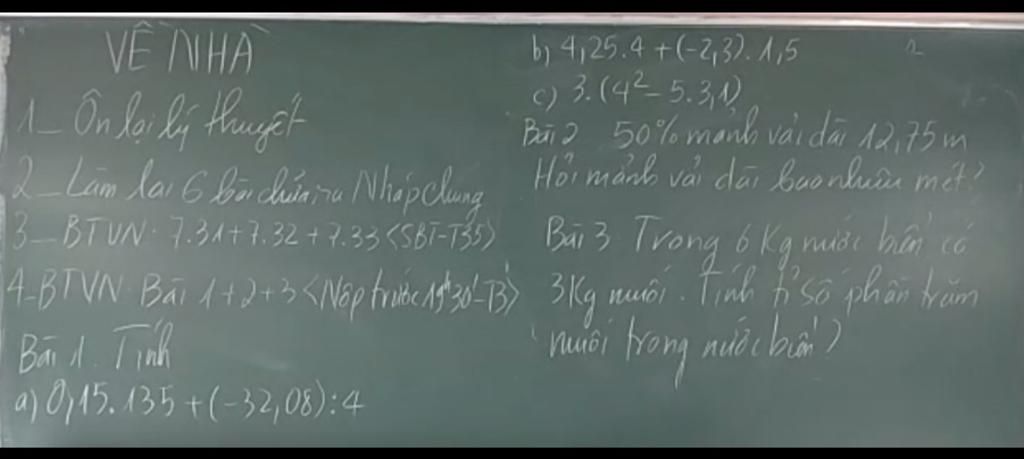 VỀ NHÀ
1_ Ôn lại lý thuyết
2_ Làm lại 6 bài chữa ra Nháp chung
3_ BTVN. 7.31+7.32+7.33 <SBT-T35>
4_BTVN Bài 1+2+3 <Nộp trước 19h30'-T3>
Bài 1. Tính
a) 0,15.135 + (-32,08):4
b) 4,25.4 + (-2,3).1,5
c) 3.(4²- 5.3,1)
Bài 2 50% mảnh vải dài 12,75m
Hỏi mảnh vải dài bao nhiêu mét?
Bài 3 Trong 6 Kg nước biển có
3Kg muối. Tính tỉ số phần trăm
muối trong nước biển?